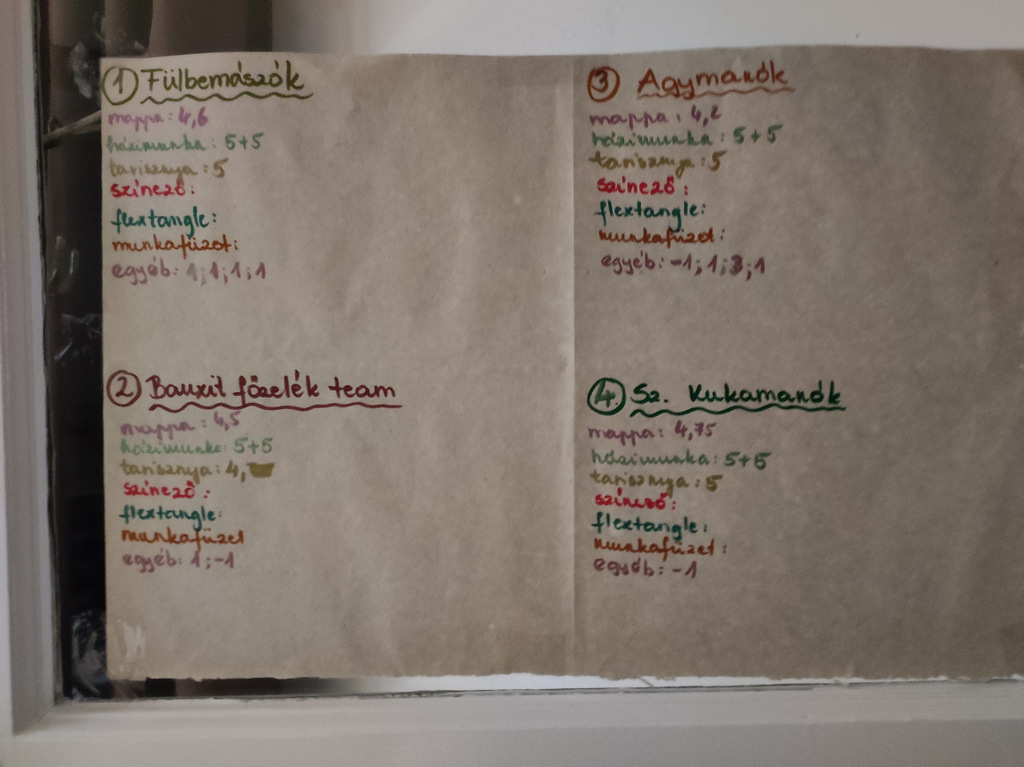 1 Fülbemászók
mappa: 4,6
házimunka: 5+5
tarisznya: 5
színező:
flextangle:
munkafüzet:
egyéb: 1; 1; 1; 1
2 Bauxit főzelék team
mappa: 4,5
házimunka: 5+5
tarisznya: 4,
színező:
flextangle:
munkafüzet
egyéb: 1; -1
3 Agymanók
mappa: 4,2
házimunka: 5+5
tarisznya: 5
színező:
flextangle:
munkafüzet:
egyéb: -1; 1; 3; 1
4. Sz. Kukamanók
mappa: 4,75
házimunka: 5+5
tarisznya: 5
színező:
flextangle:
munkafüzet:
egyéb: -1